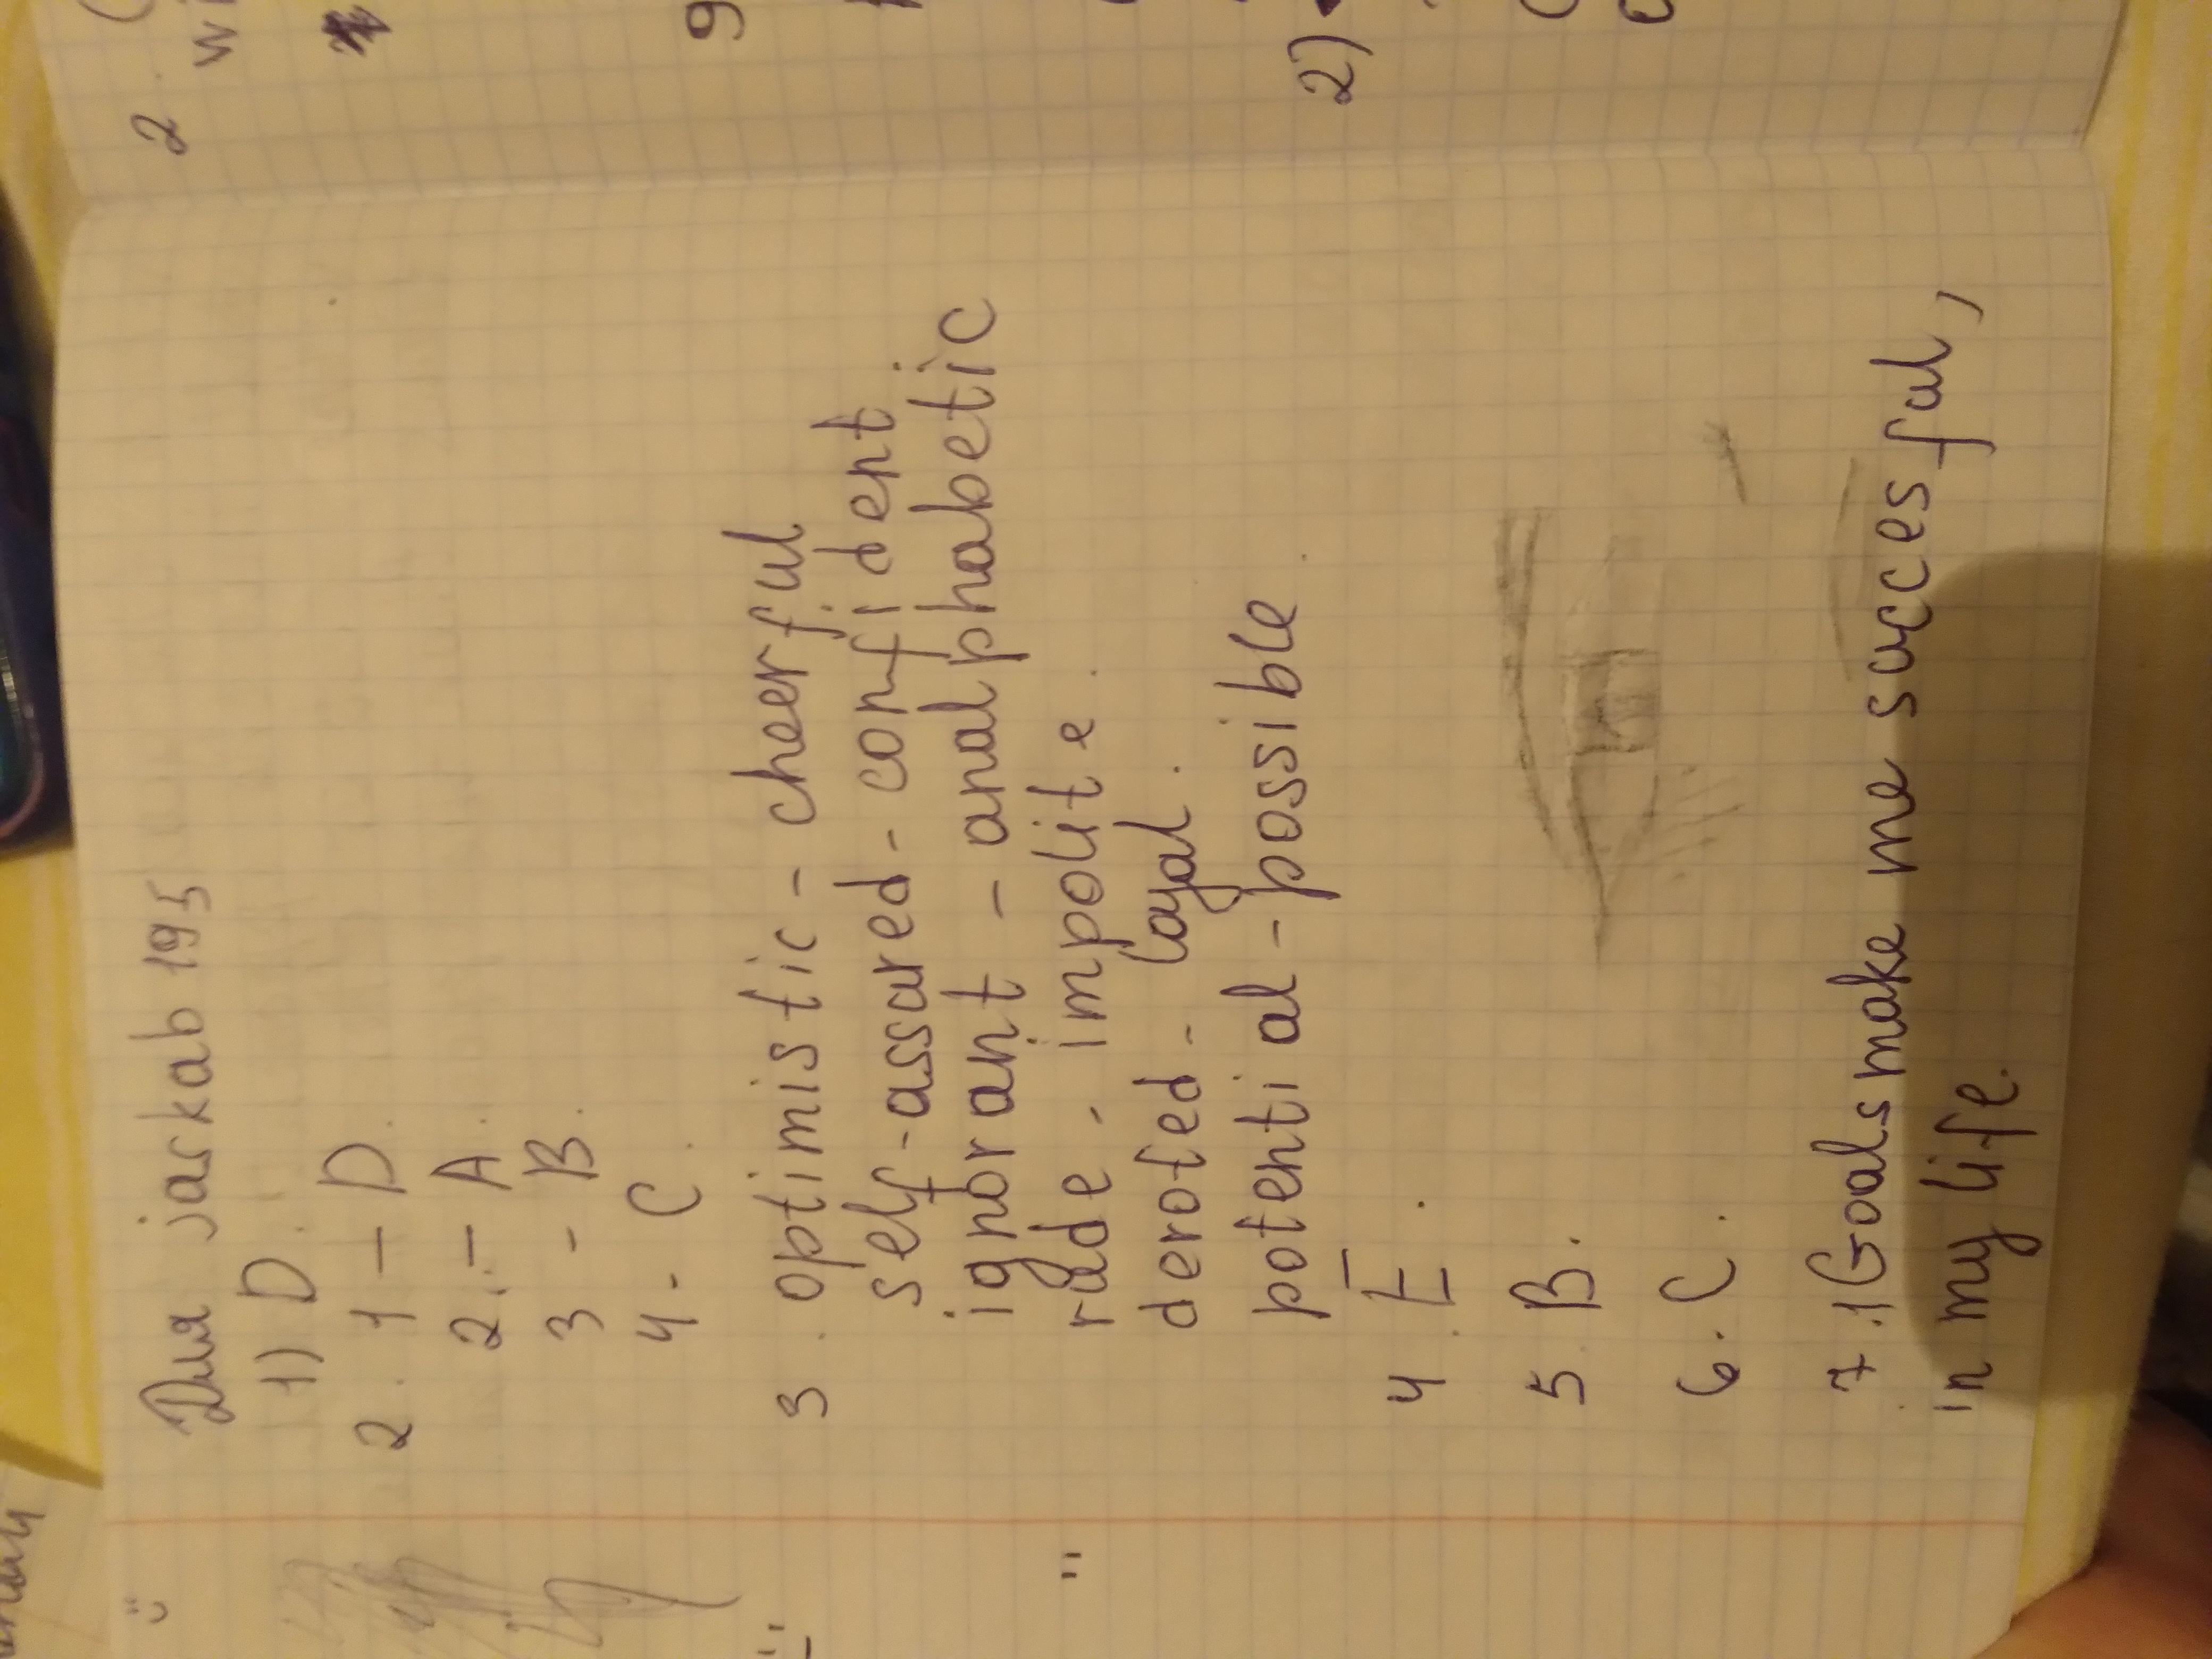 Для jarkab 195
1) D.
2. 1 – D.
2. – A.
3 - B.
4. - C.
3. optimistic - cheerful
self-assured - confident
ignorant - analphabetic
rude - impolite.
devoted - loyal.
potential - possible
4. E.
5. B.
6. C.
7. 1 Goals make me succesful,
in my life.
2
wi
9
2)